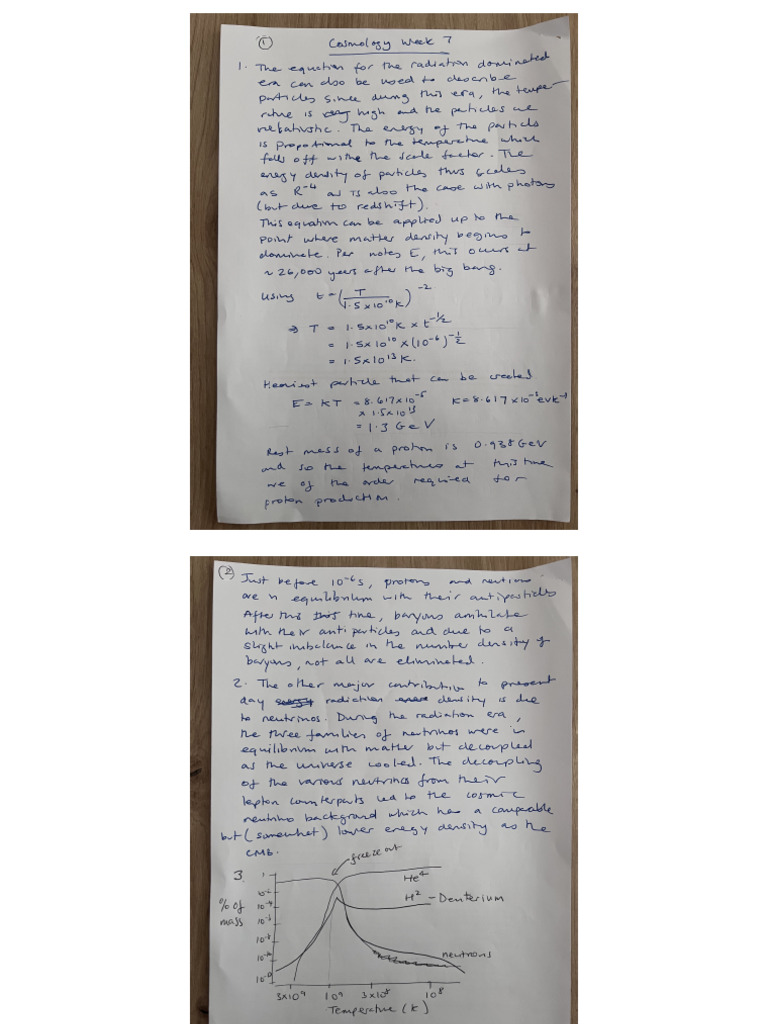 ①
Cosmology Week 7
1. The equation for the radiation dominated
era can also be used to describe
particles since during this era, the tempe-
rature is very high and the particles are
relativistic. The energy of the particle
is proportional to the temperature which
falls off with the scale factor. The
energy density of particles thus scales
as R⁻⁴ as is also the case with photons
(but due to redshift).
This equation can be applied up to the
point where matter density begins to
dominate. Per notes E, this occurs at
~ 26,000 years after the big bang.
Using t = (T / 1.5x10¹⁰K)⁻²
⇒ T = 1.5x10¹⁰K x t^-1/2
= 1.5x10¹⁰ x (10⁻⁶)^-1/2
= 1.5x10¹³ K.
Heaviest particle that can be created
E = KT = 8.617x10⁻⁵ K = 8.617x10⁻⁵ eVK⁻¹
x 1.5x10¹³
= 1.3 GeV
Rest mass of a proton is 0.938 GeV
and so the temperatures at this time
are of the order required for
proton production.
②
Just before 10⁻⁶s, protons and neutrons
are in equilibrium with their antiparticles
After this time, baryons annihilate
with their antiparticles and due to a
slight imbalance in the number density of
baryons, not all are eliminated.
2. The other major contribution to present
day radiation density is due
to neutrinos. During the radiation era,
the three families of neutrinos were in
equilibrium with matter but decoupled
as the universe cooled. The decoupling
of the various neutrinos from their
lepton counterparts led to the cosmic
neutrino background which has a comparable
but (somewhat) lower energy density as the
CMB.
freeze out
3.
% of
mass
1
He⁴
H² - Deuterium
neutrons
3x10⁹ 10⁹ 3x10⁸ 10⁸
Temperature (K)